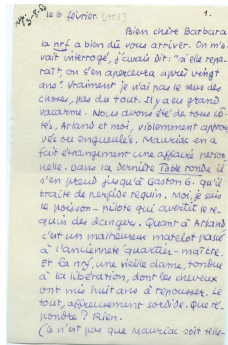 le 6 février. [1953] 1.
Bien chère Barbara
la nrf a bien dû vous arriver. On m'a-
vait interrogé, j'avais dit: "si elle repa-
raît, on s'en apercevra après vingt
ans" Vraiment je n'ai pas le sens des
choses, pas du tout. Il y a eu grand
vacarme. Nous avons été de tous cô-
tés, Arland et moi, violemment approu-
vés ou engueulés. Mauriac en a
fait étrangement une affaire person
nelle. Dans la dernière Table ronde il
s'en prend jusqu'à Gaston G. qu'il
traite de perfide requin. Moi, je suis
le poisson-pilote qui avertit le re-
quin des dangers. Quant à Arland
c'est un malheureux matelot passé
à l'ancienneté quartier-maître.
Et la nrf, une vieille dame, tondue
à la libération, dont les cheveux
ont mis huit ans à repousser. Le
tout, affreusement sordide. Que ré-
pondre? Rien.
Ce n'est pas que Mauriac soit telle-